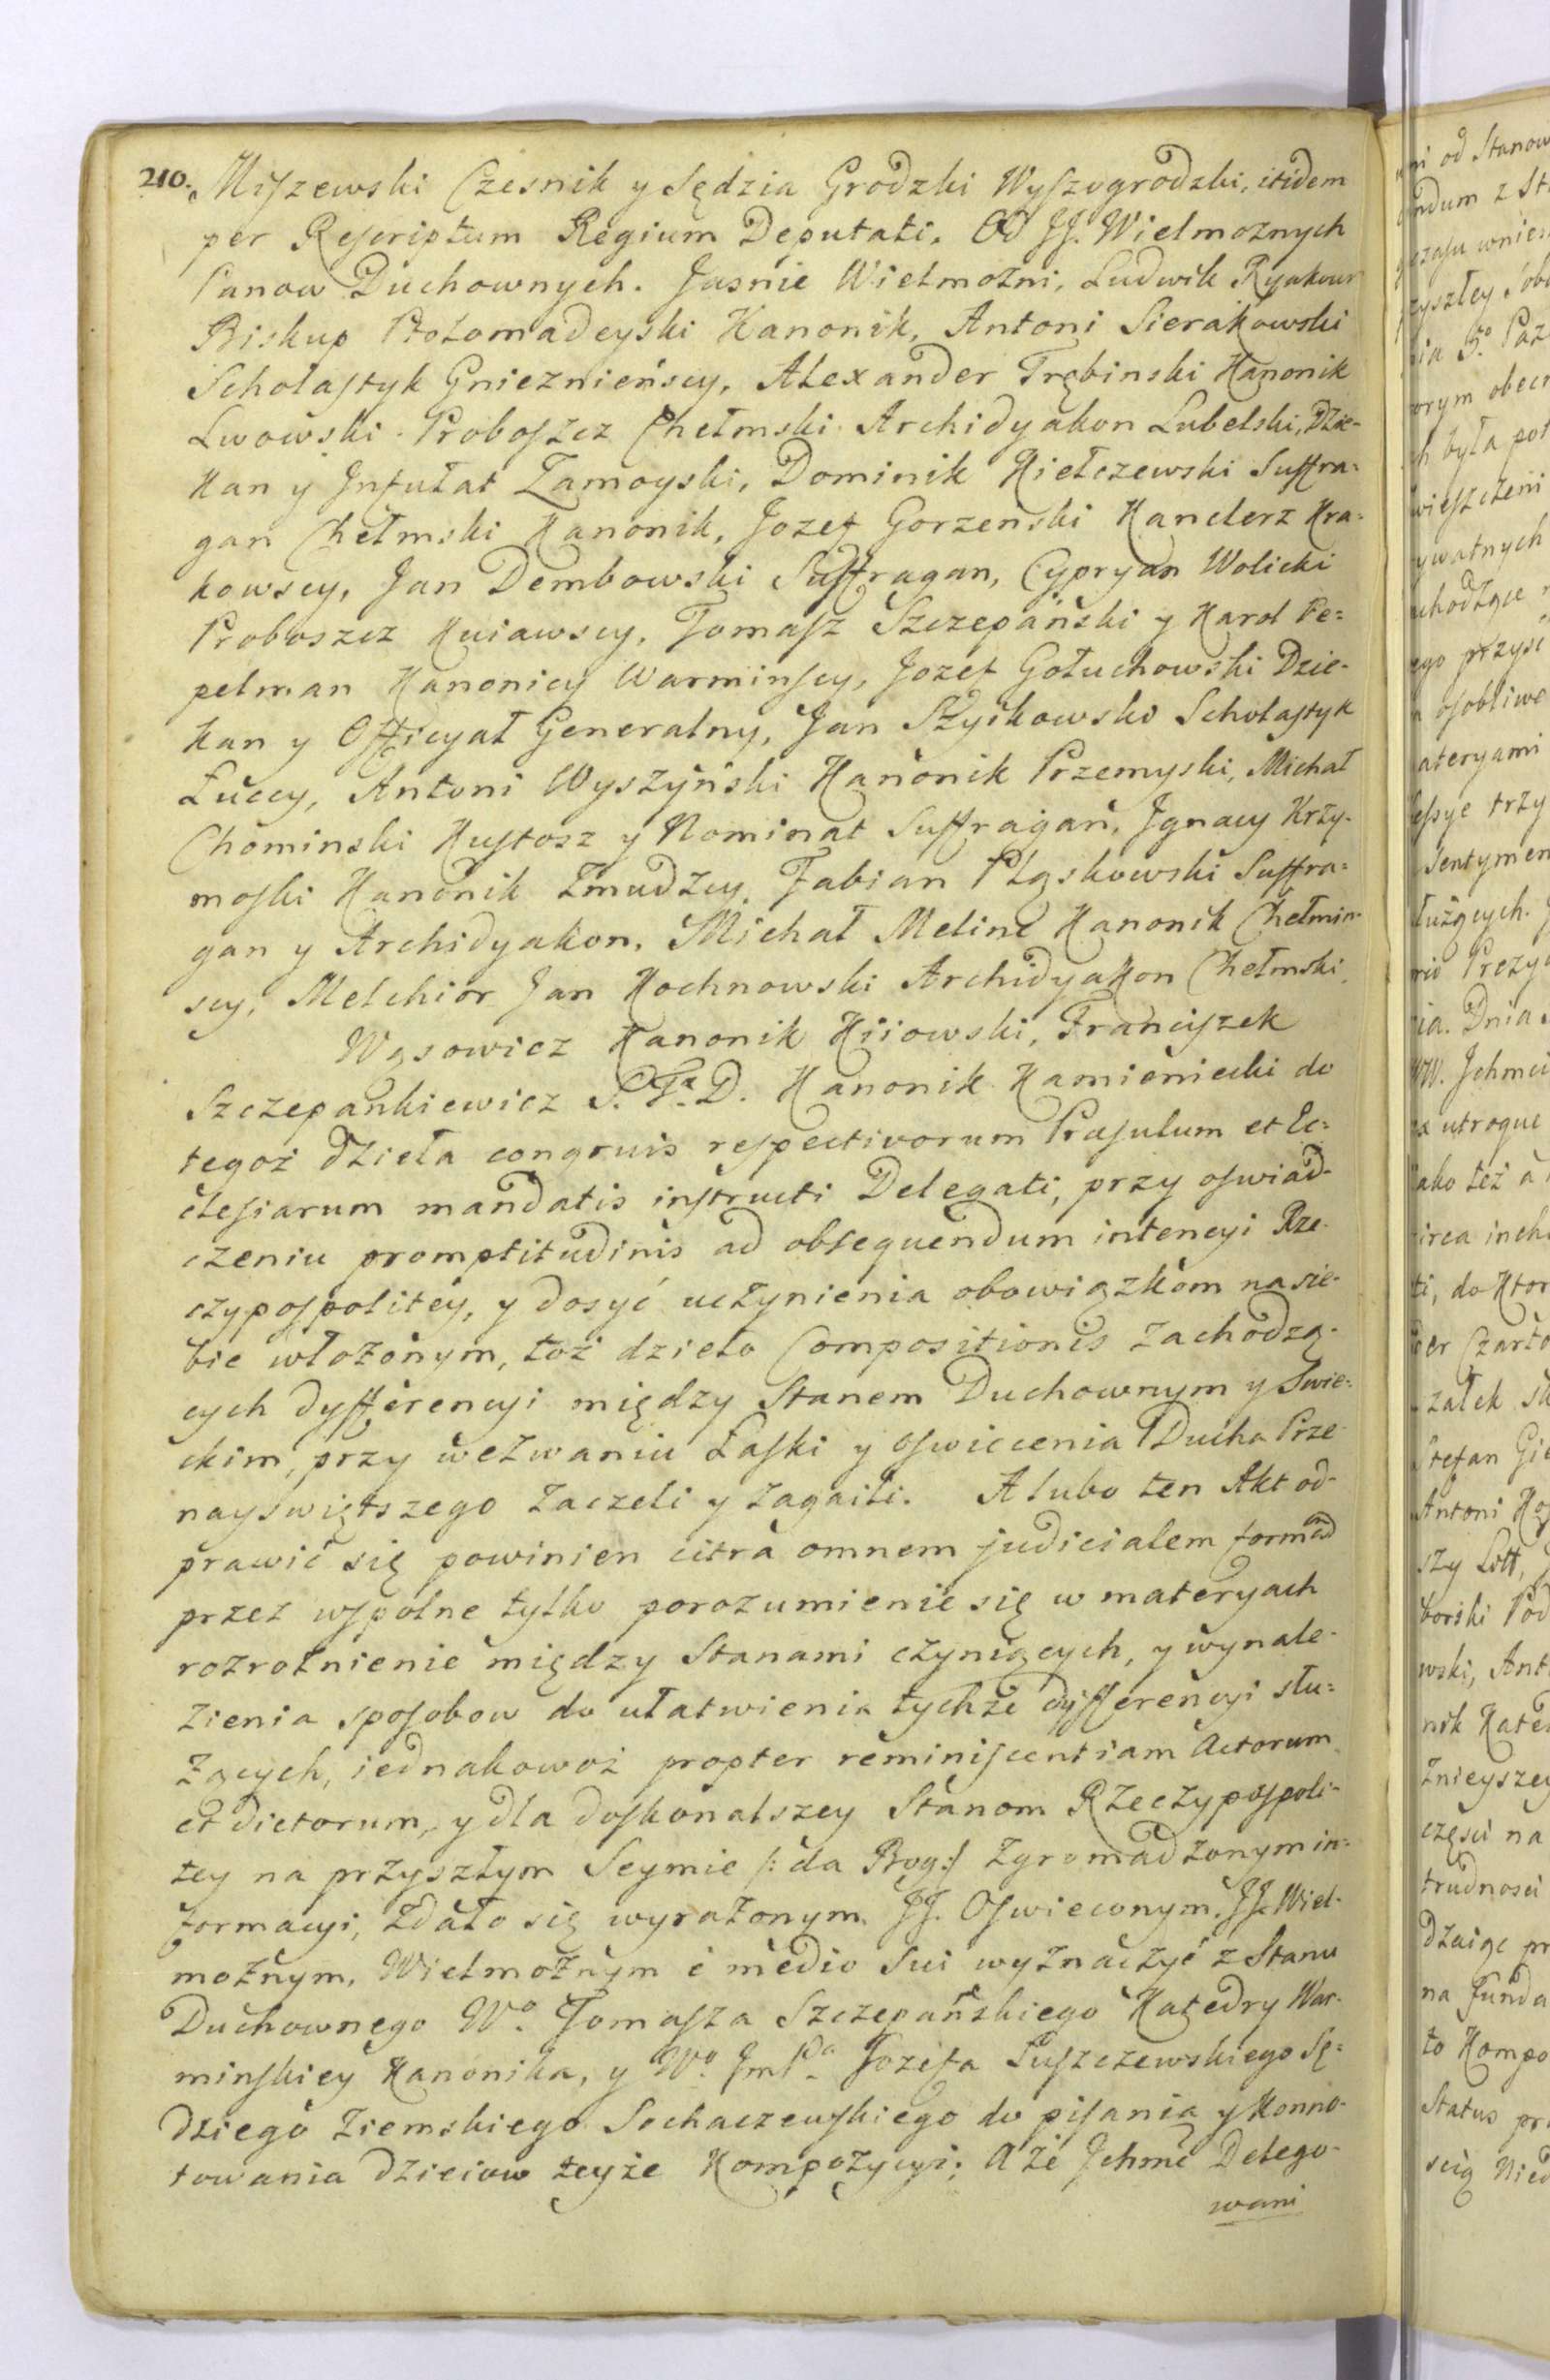 210. Miszewski Czesnik y Sędzia Grodzki Wyszogrodzki, itidem
per Rescriptum Regium Deputati. Od JJ. Wielmoznych
Panow Duchownych. Jasnie Wielmożni, Ludwik
Biskup Ptolomadeyski Kanonik, Antoni Sierakowski
Scholastyk Gnieznieńscy, Alexander Trębinski Kanonik
Lwowski Proboszcz Chełmski Archidyakon Lubelski, Dzie-
kan y Infułat Zamoyski, Dominik Kiełczewski Suffra=
gan Chełmski Kanonik, Jozef Gorzenski Kanclerz Kra=
kowscy, Jan Dembowski Suffragan, Cypryan Wolicki
Proboszcz Kuiawscy, Tomasz Szczepański y Karol Pe=
pelman Kanonicy Warminscy, Jozef Gołuchowski Dzie-
kan y Officyał Generalny, Jan Szyikowski Scholastyk
Łuccy, Antoni Wyszyński Kanonik Przemyski, Michał
Chominski Kustosz y Nominat Suffragan, Ignacy Krzy-
moski Kanonik Zmudzcy, Fabian Pląskowski Suffra=
gan y Archidyakon, Michał Meline Kanonik Chełmin-
scy, Melchior Jan Kochnowski Archidyakon Chełmski,
Wąsowicz Kanonik Kiiowski, Franciszek
Szczepankiewicz S. Ta. D. Kanonik Kamieniecki do
tegoż dzieła congruis respectivorum Præsulum et Ec=
clesiarum mandatis instructi Delegati, przy oswiad-
czeniu promptitudinis ad obsequendum intencyi Rze-
czypospolitey, y dosyć uczynienia obowiązkom na sie-
bie włożonym, toż dzieło Compositionis zachodzą-
cych dyfferencyi między Stanem Duchownym y Swie-
ckim, przy wezwaniu Łaski y oswiecenia Ducha Prze-
nayswiętszego zaczeli y zagaili. A lubo ten Akt od-
prawić się powinien citra omnem judicialem formam
przez wspolne tylko porozumienie się w materyach
rozrożnienie między Stanami czyniących, y wynale-
zienia sposobow do ułatwienia tychże dyfferencyi słu=
żących, iednakowoż propter reminiscentiam Actorum
et dictorum, y dla doskonalszey Stanom Rzeczypospoli-
tey na przyszłym Seymie /: da Bog :/ zgromadzonym in=
formacyi, zdało się wyrażonym JJ. Oswieconym, JJ. Wiel-
możnym, Wielmożnym è medio sui wyznaczyć z Stanu
Duchownego Wo. Tomasza Szczepańskiego Katedry War-
minskiey Kanonika, y Wo. JmPa. Jozefa Puszczewskiego Sę=
dziego Ziemskiego Sochaczewskiego do pisania y Konno-
towania dzieiow teyże Kompozycyi; A że Jchmć Delego-
wani